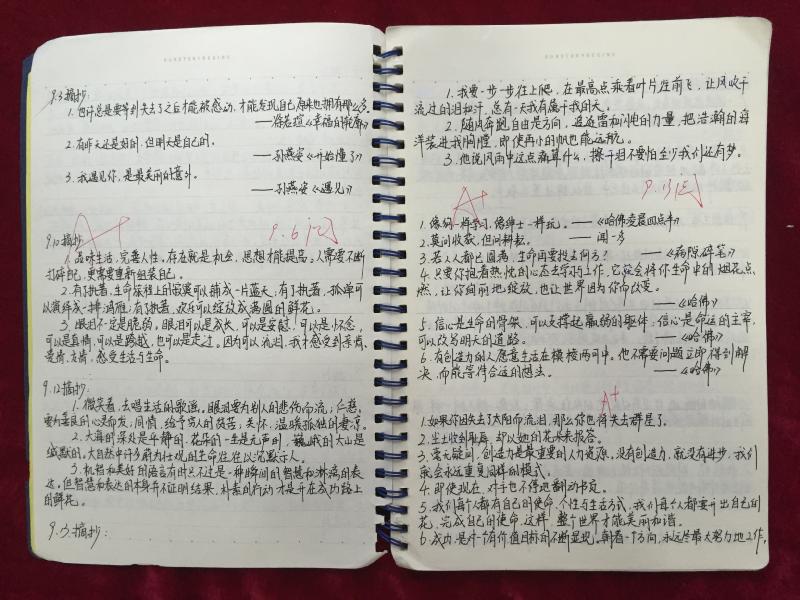 9.3摘抄:
1. 也许总是要等到失去了之后才能被感动,才能发现自己原来也拥有那么多
——徐若瑄《幸福的能力》
2. 有昨天还是好的,但明天是自己的。
——孙燕姿《开始懂了》
3. 我遇见你,是最美丽的意外。
——孙燕姿《遇见》
A+ 9.6 阅
9.10摘抄
1. 品味生活,完善人性。存在就是机会,思想才能提高。人需要不断
打碎自己,更需要重新组装自己。
2. 有了执着,生命旅程上的寂寞可以铺成一片蓝天;有了执着,孤单可
以演绎成一排鸿雁;有了执着,欢乐可以绽放成满园的鲜花。
3. 眼泪不一定是脆弱,眼泪可以是成长,可以是安慰,可以是怀念,
可以是真情,可以是跨越,也可以是走过。因为可以流泪,我才感受到亲情、
爱情、友情,感受生活与生命。
9.12摘抄:
1. 微笑着,去唱生活的歌谣。眼泪要为别人的悲伤而流;仁慈
要为善良的心灵而发;同情,给予穷人的贫苦;关怀,温暖孤独的凄凉。
2. 大海的深处是平静的,花朵的一生是无声的,巍峨的大山是
缄默的。大自然中许多蔚为壮观的生命往往以沉默示人。
3. 机智和美好的语言有时只不过是一种瞬间的智慧和淋漓的表
达,但智慧和表达的本身并不证明结果,朴素的行动才是开在成功路上
的鲜花。
9.13摘抄:
1. 我要一步一步往上爬,在最高点乘着叶片往前飞,让风吹干
流过的泪和汗,总有一天我有属于我的天。
2. 随风奔跑自由是方向,追逐雷和闪电的力量,把浩瀚的海
洋装进我胸膛,即使再小的帆也能远航。
3. 他说风雨中这点痛算什么,擦干泪不要怕至少我们还有梦。
A+ 9.13 阅
1. 像狗一样学习,像绅士一样玩。——《哈佛凌晨四点半》
2. 莫问收获,但问耕耘。——闻一多
3. 若人人都已圆满,生命再要投去何方?——《病隙碎笔》
4. 只要你抱着热忱的心态去学习与工作,它就会将你生命中的烟花点
燃,让你绚丽地绽放,也让世界因为你而改变。
——《哈佛》
5. 信心是生命的脊梁,可以支撑起羸弱的躯体;信心是命运的主宰,
可以改写明天的道路。——《哈佛》
6. 有创造力的人愿意生活在模棱两可中。他不需要问题立即得到解
决,而能等待合适的想法。——《哈佛》
A+
1. 如果你因失去了太阳而流泪,那么你也将失去群星了。
2. 尘土收到耻辱,却以她的花朵来报答。
3. 毫无疑问,创造力是最重要的人力资源。没有创造力,就没有进步,我们
就会永远重复同样的模式。
4. 即使现在,对手也不停地翻动书页。
5. 我们每个人都有自己的使命、个性与生活方式,我们每个人都要开出自己的
花,完成自己的使命,这样,整个世界才能美丽和谐。
6. 成功,是对一个有价值目标的不断显现。朝着一个方向,永远尽最大努力地工作。